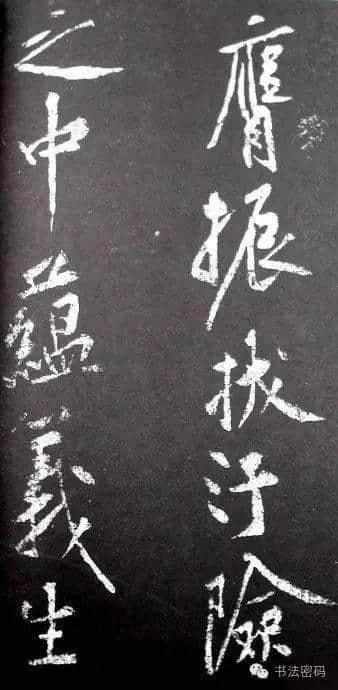 膺振拔汙險
之中蘊義生
书法密码